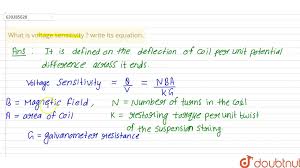 630385020
What is voltage sensitivity? write its equation.
Ans: It is defined on the deflection of coil per unit potential
difference across it ends.
Voltage Sensitivity = θ/V = NBA/kG
B = Magnetic field, N = Number of turns in the coil
A = area of coil K = restoring torque per unit twist
of the suspension string
G = galvanometer resistance
doubtnut